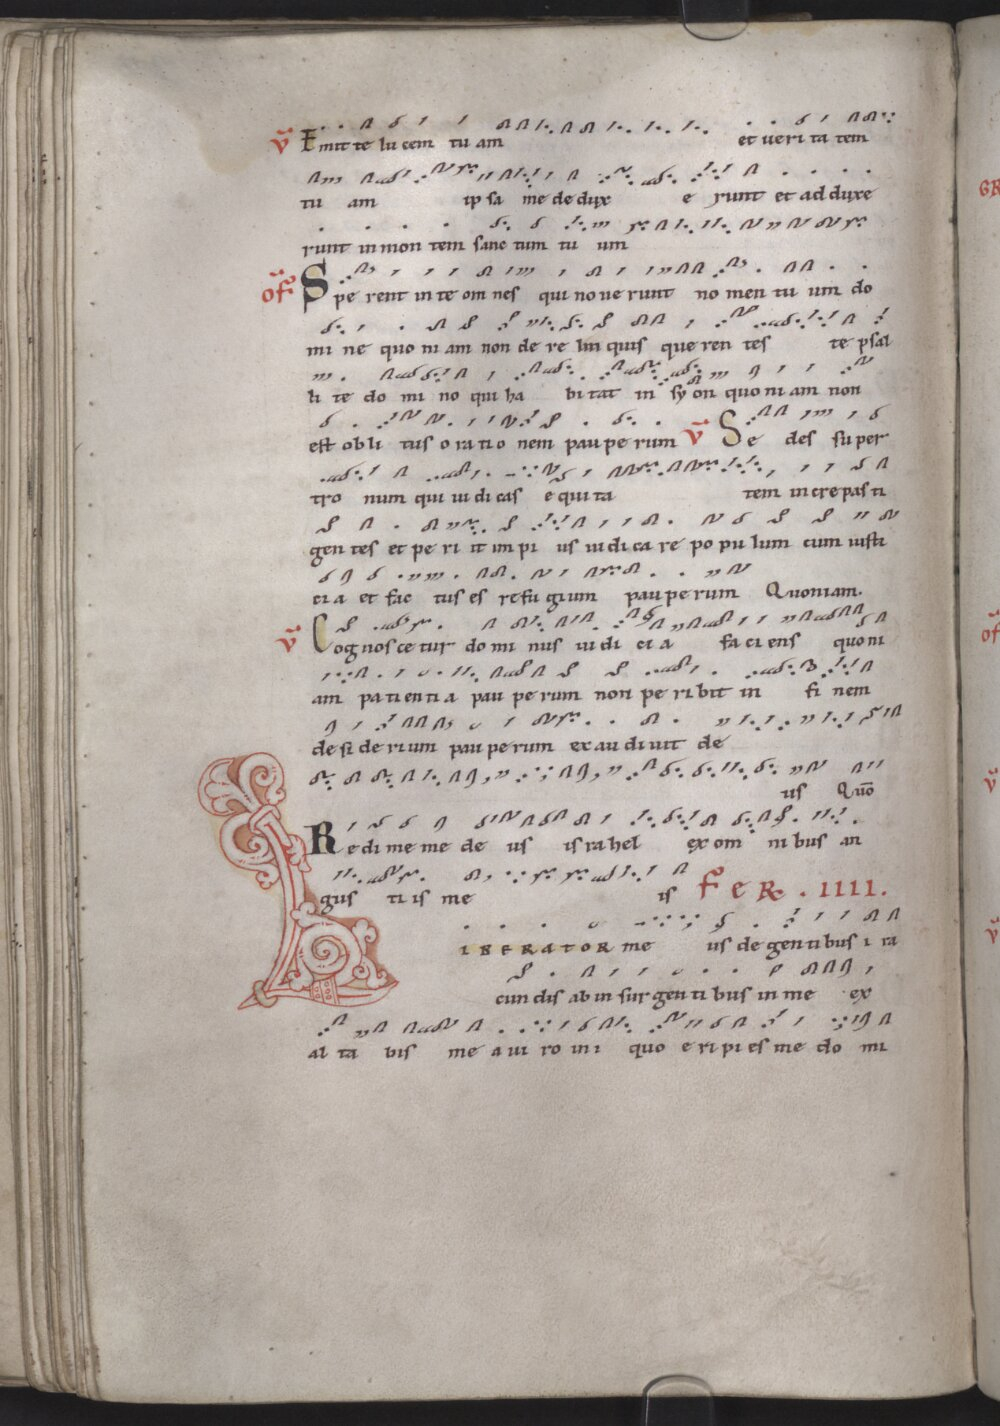 v̄ Emitte lu cem tu am et ueri ta tem
tu am ip sa me de dux e runt et ad duxe
runt in mon tem sanc tum tu um
of̄ Spe rent in te om nes qui no ue runt no men tu um do
mi ne quo ni am non de re lin quis que ren tes te psal
li te do mi no qui ha bi tat in sy on quo ni am non
est ob li tus o ra ti o nem pau pe rum v̄ Se des su per
tro num qui iu di cas e qui ta tem in cre pas ti
gen tes et pe ri it im pi us iu di ca re po pu lum cum iusti
ci a et fac tus es refu gium pau pe rum Quoniam.
v̄ Cog nos ce tur do mi nus iu di ci a fa ci ens quo ni
am pa ti en ti a pau pe rum non pe ri bit in fi nem
de si de ri um pau pe rum ex au di uit de
us Quō
Re di me me de us is ra hel ex om ni bus an
gus ti is me is FER. IIII.
LIBERATOR me us de gen tibus i ra
cun dis ab in sur gen ti bus in me ex
al ta bis me a ui ro ini quo e ri pi es me do mi
GR
of
v̄
v̄